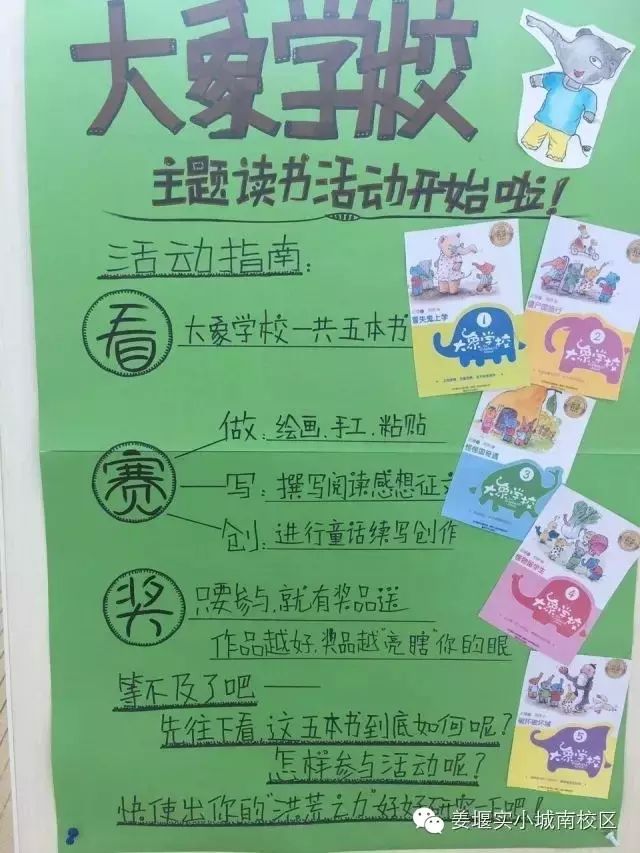 大象学校
主题读书活动开始啦！
活动指南：
看 大象学校一共五本书
冒失鬼上学
1
大象学校
2
大象学校
赛
做：绘画、手工、粘贴
写：撰写阅读感想征文
创：进行童话续写创作
3
大象学校
奖
只要参与，就有奖品送
作品越好，奖品越"亮瞎"你的眼
4
大象学校
等不及了吧——
先往下看，这五本书到底如何呢？
怎样参与活动呢？
快使出你的"洪荒之力"好好研究一下吧！
破坏破坏城
5
大象学校
姜堰实小城南校区